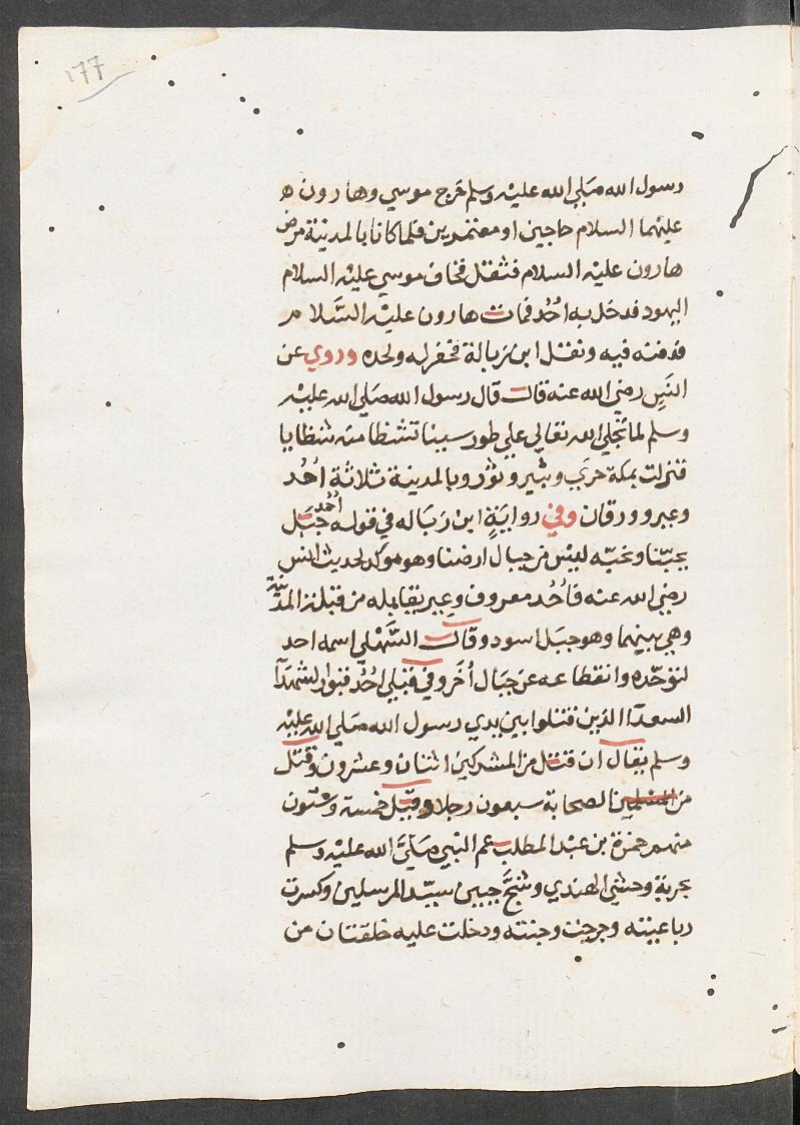 ١٦٦
رسول الله صلي الله عليه وسلم خرج موسي وهارون ه
عليهما السلام حاجين او معتمرين فلما كانا بالمدينة مرض
هارون عليه السلام فثقل فخاف موسي عليه السلام
اليهود فدخل به احُد فمات هارون عليه السَّلام
فدفنه فيه ونقل ابن زبالة فحفر له ولحده وروي عن
انس رضي الله عنه قال قال رسول الله صلي الله عليه
وسلم لما تجلي الله تعالي علي طور سينا تشظا منه شظايا
فنزلت بمكة حري وثبير وثور وبالمدينة ثلاثة اُحُد
وعير وورقان وفي رواية ابن زباله في قوله اُحُد جبَل
يحبّنا ونحبّه ليس من جبال ارضنا وهو موكد لحديث انس
رضي الله عنه فاُحُد معروف وعير يقابله من قبلة المدينة
وهي بينهما وهو جبَل اسود وقال السُّهَيلي اسمه احد
لتوحّده وانقطاعه عن جبال اُخَر وفي قبلي احُد قبور الشهدآ
السعدآ الذين قتلوا بين يدي رسول الله صلي الله عليه
وسلم يقال ان قتل من المشركين اثنان وعشرون وقتل
من الصحابة سبعون رجلا وقيل خمسة وستون
منهم حمزة بن عبد المطلب عم النبي صلَّي الله عليه وسلم
بحربة وحشي الهندي وشجَّ جبين سيّد المرسلين وكسرت
رباعيته وجرحت وجنته ودخلت عليه حلقتان من